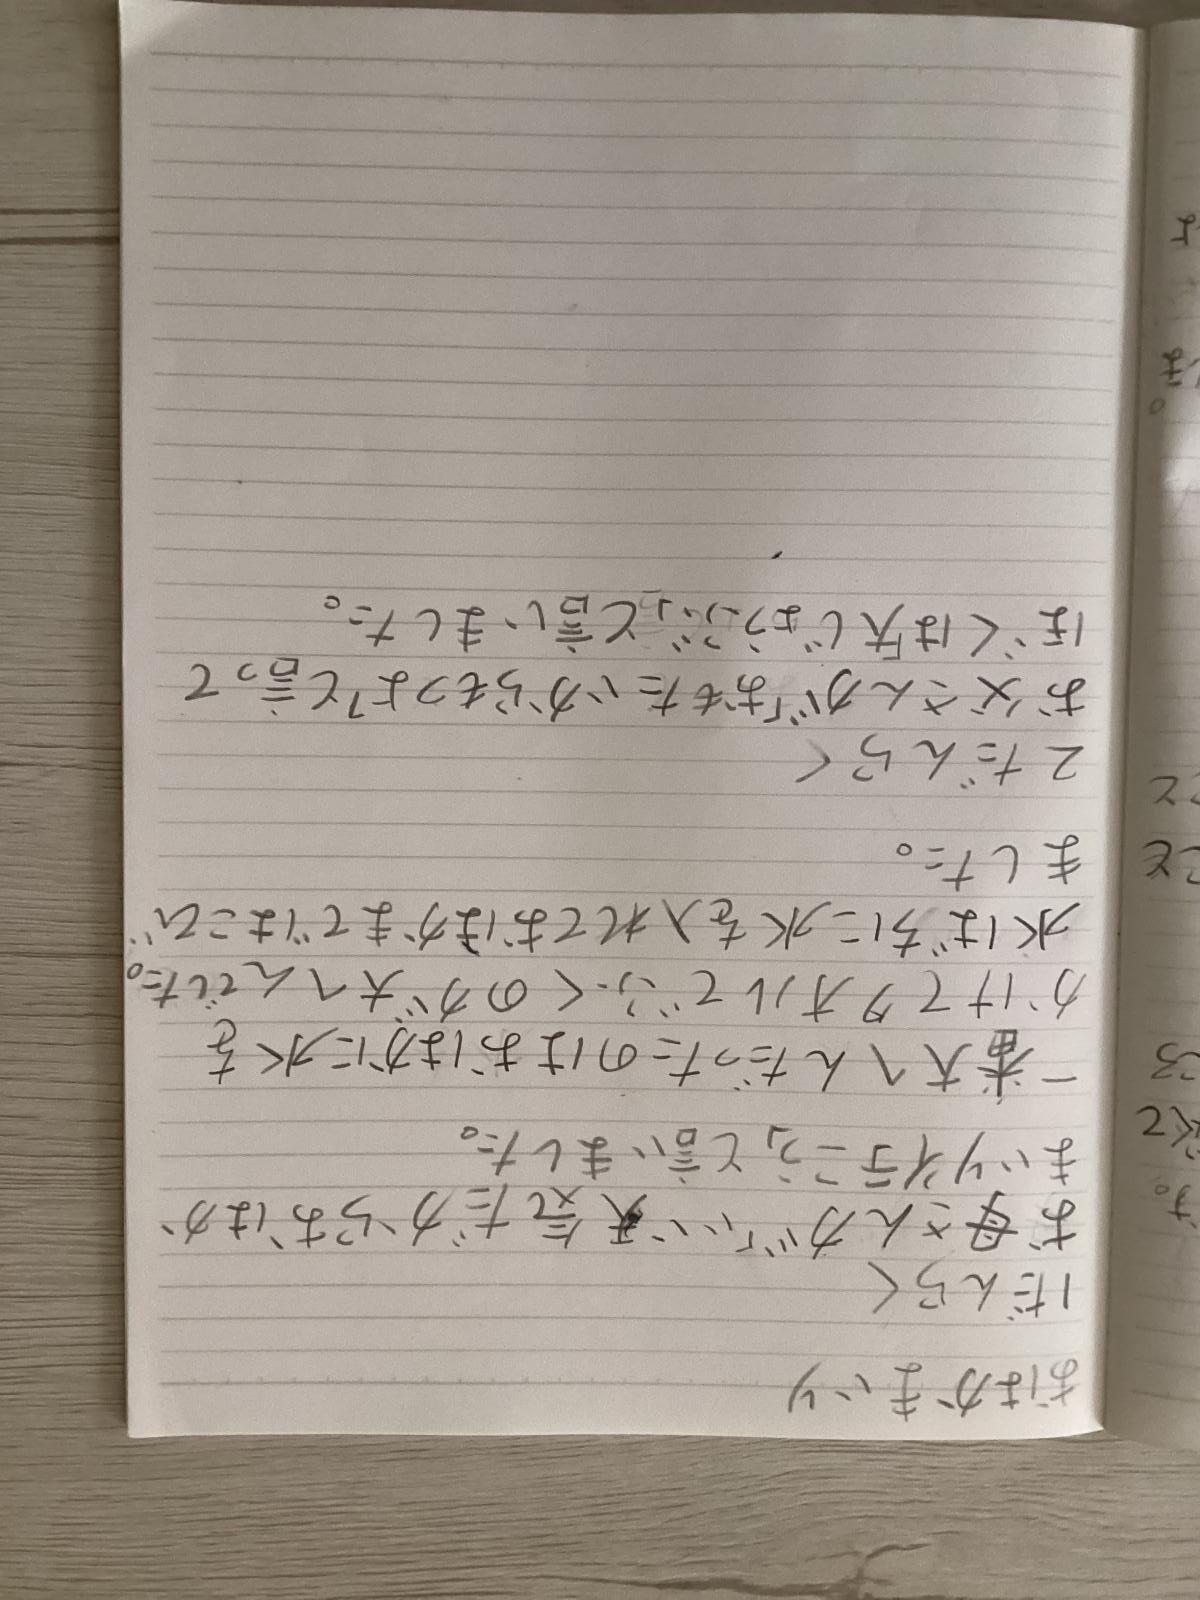 おはかまいり
1だんらく
お母さんが「いい天気だからおはか
まいり行こう」と言いました。
一番大へんだったのはおはかに水を
かけてタオルでふくのが大へんでした。
水ばちに水を入れておはかまではこび
ました。
2だんらく
お父さんが「おもたいからもつよ」と言って
ぼくは「大じょうぶ」と言いました。